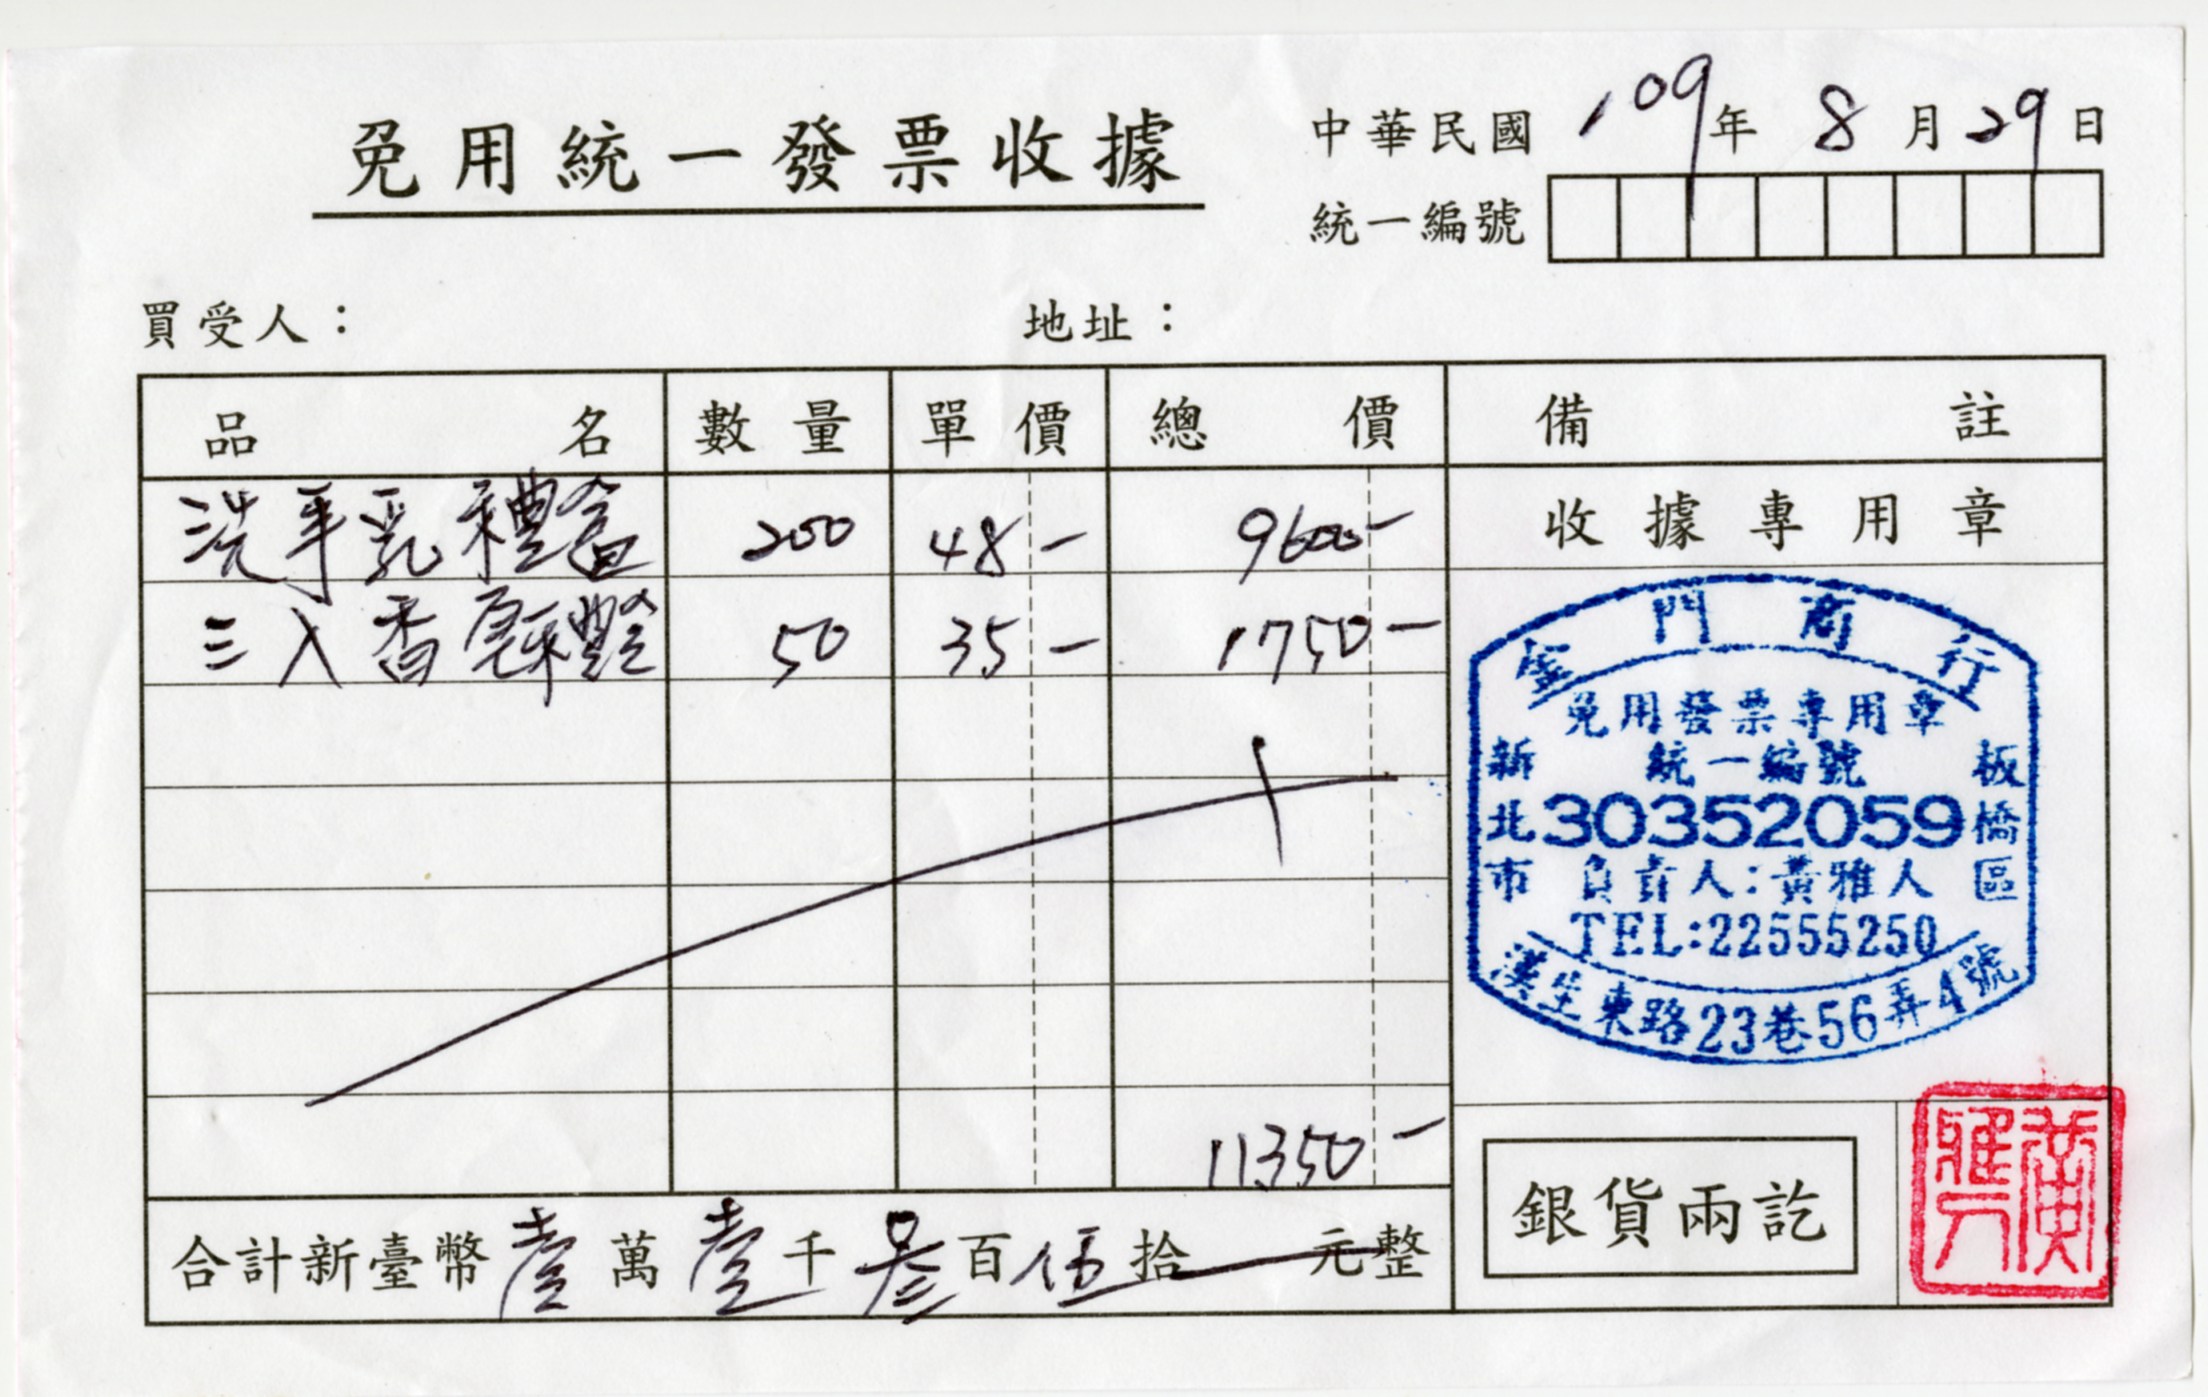 免用統一發票收據
中華民國 109年 8月29日
統一編號
買受人： 地址：
品名 數量 單價 總價 備註
洗手乳禮盒 200 48- 9600-
收據專用章
三入香皂禮盒 50 35- 1750-
11350-
合計新臺幣壹萬壹千叁百伍拾元整
金門商行
免用發票專用章
統一編號
新北市 板橋區
30352059
負責人:黃雅人
TEL:22555250
漢生東路23巷56弄4號
銀貨兩訖
黃雅人